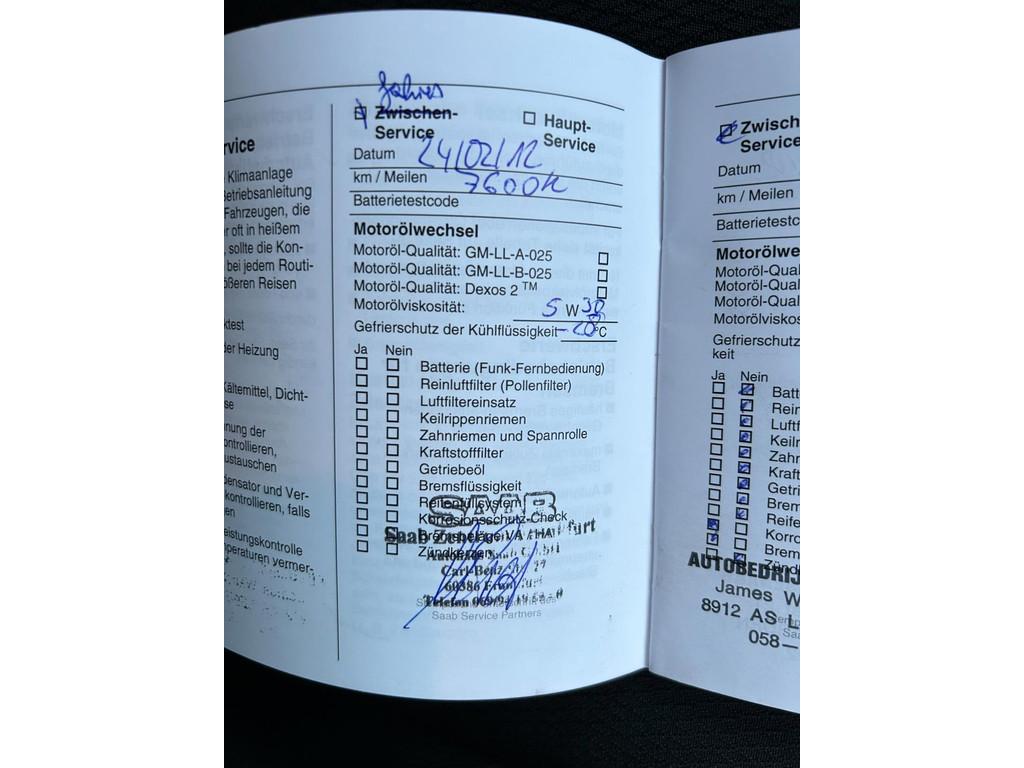 rvice
Klimaanlage
Betriebsanleitung
Fahrzeugen, die
r oft in heißem
, sollte die Kon-
bei jedem Routi-
ößeren Reisen
ktest
der Heizung
Kältemittel, Dicht-
se
nung der
ontrollieren,
ustauschen
densator und Ver-
kontrollieren, falls
gen
eistungskontrolle
peraturen vermer-
Jahres
Zwischen-
Service
Haupt-
Service
Datum 24/02/12
km / Meilen 7600k
Batterietestcode
Motorölwechsel
Motoröl-Qualität: GM-LL-A-025
Motoröl-Qualität: GM-LL-B-025
Motoröl-Qualität: Dexos 2 ™
Motorölviskosität: 5 W 30
Gefrierschutz der Kühlflüssigkeit -28 °C
Ja Nein
Batterie (Funk-Fernbedienung)
Reinluftfilter (Pollenfilter)
Luftfiltereinsatz
Keilrippenriemen
Zahnriemen und Spannrolle
Kraftstofffilter
Getriebeöl
Bremsflüssigkeit
Reifenfüllsystem
SAAB
Korrosionsschutz-Check
Bremsbeläge VA / HA
Saab Zentrum Frankfurt
Zündkerzen
Carl-Benz-
60386
Telefon
Saab Service Partners
Zwisch
Service
Datum
km / Meilen
Batterietestc
Motorölwe
Motoröl-Qual
Motoröl-Qual
Motoröl-Qual
Motorölviskos
Gefrierschutz
keit
Ja Nein
Batt
Rein
Luftf
Keilr
Zahr
Kraft
Getri
Brem
Reife
Korro
Brem
Zündk
AUTOBEDRIJ
James W
8912 AS L
058-